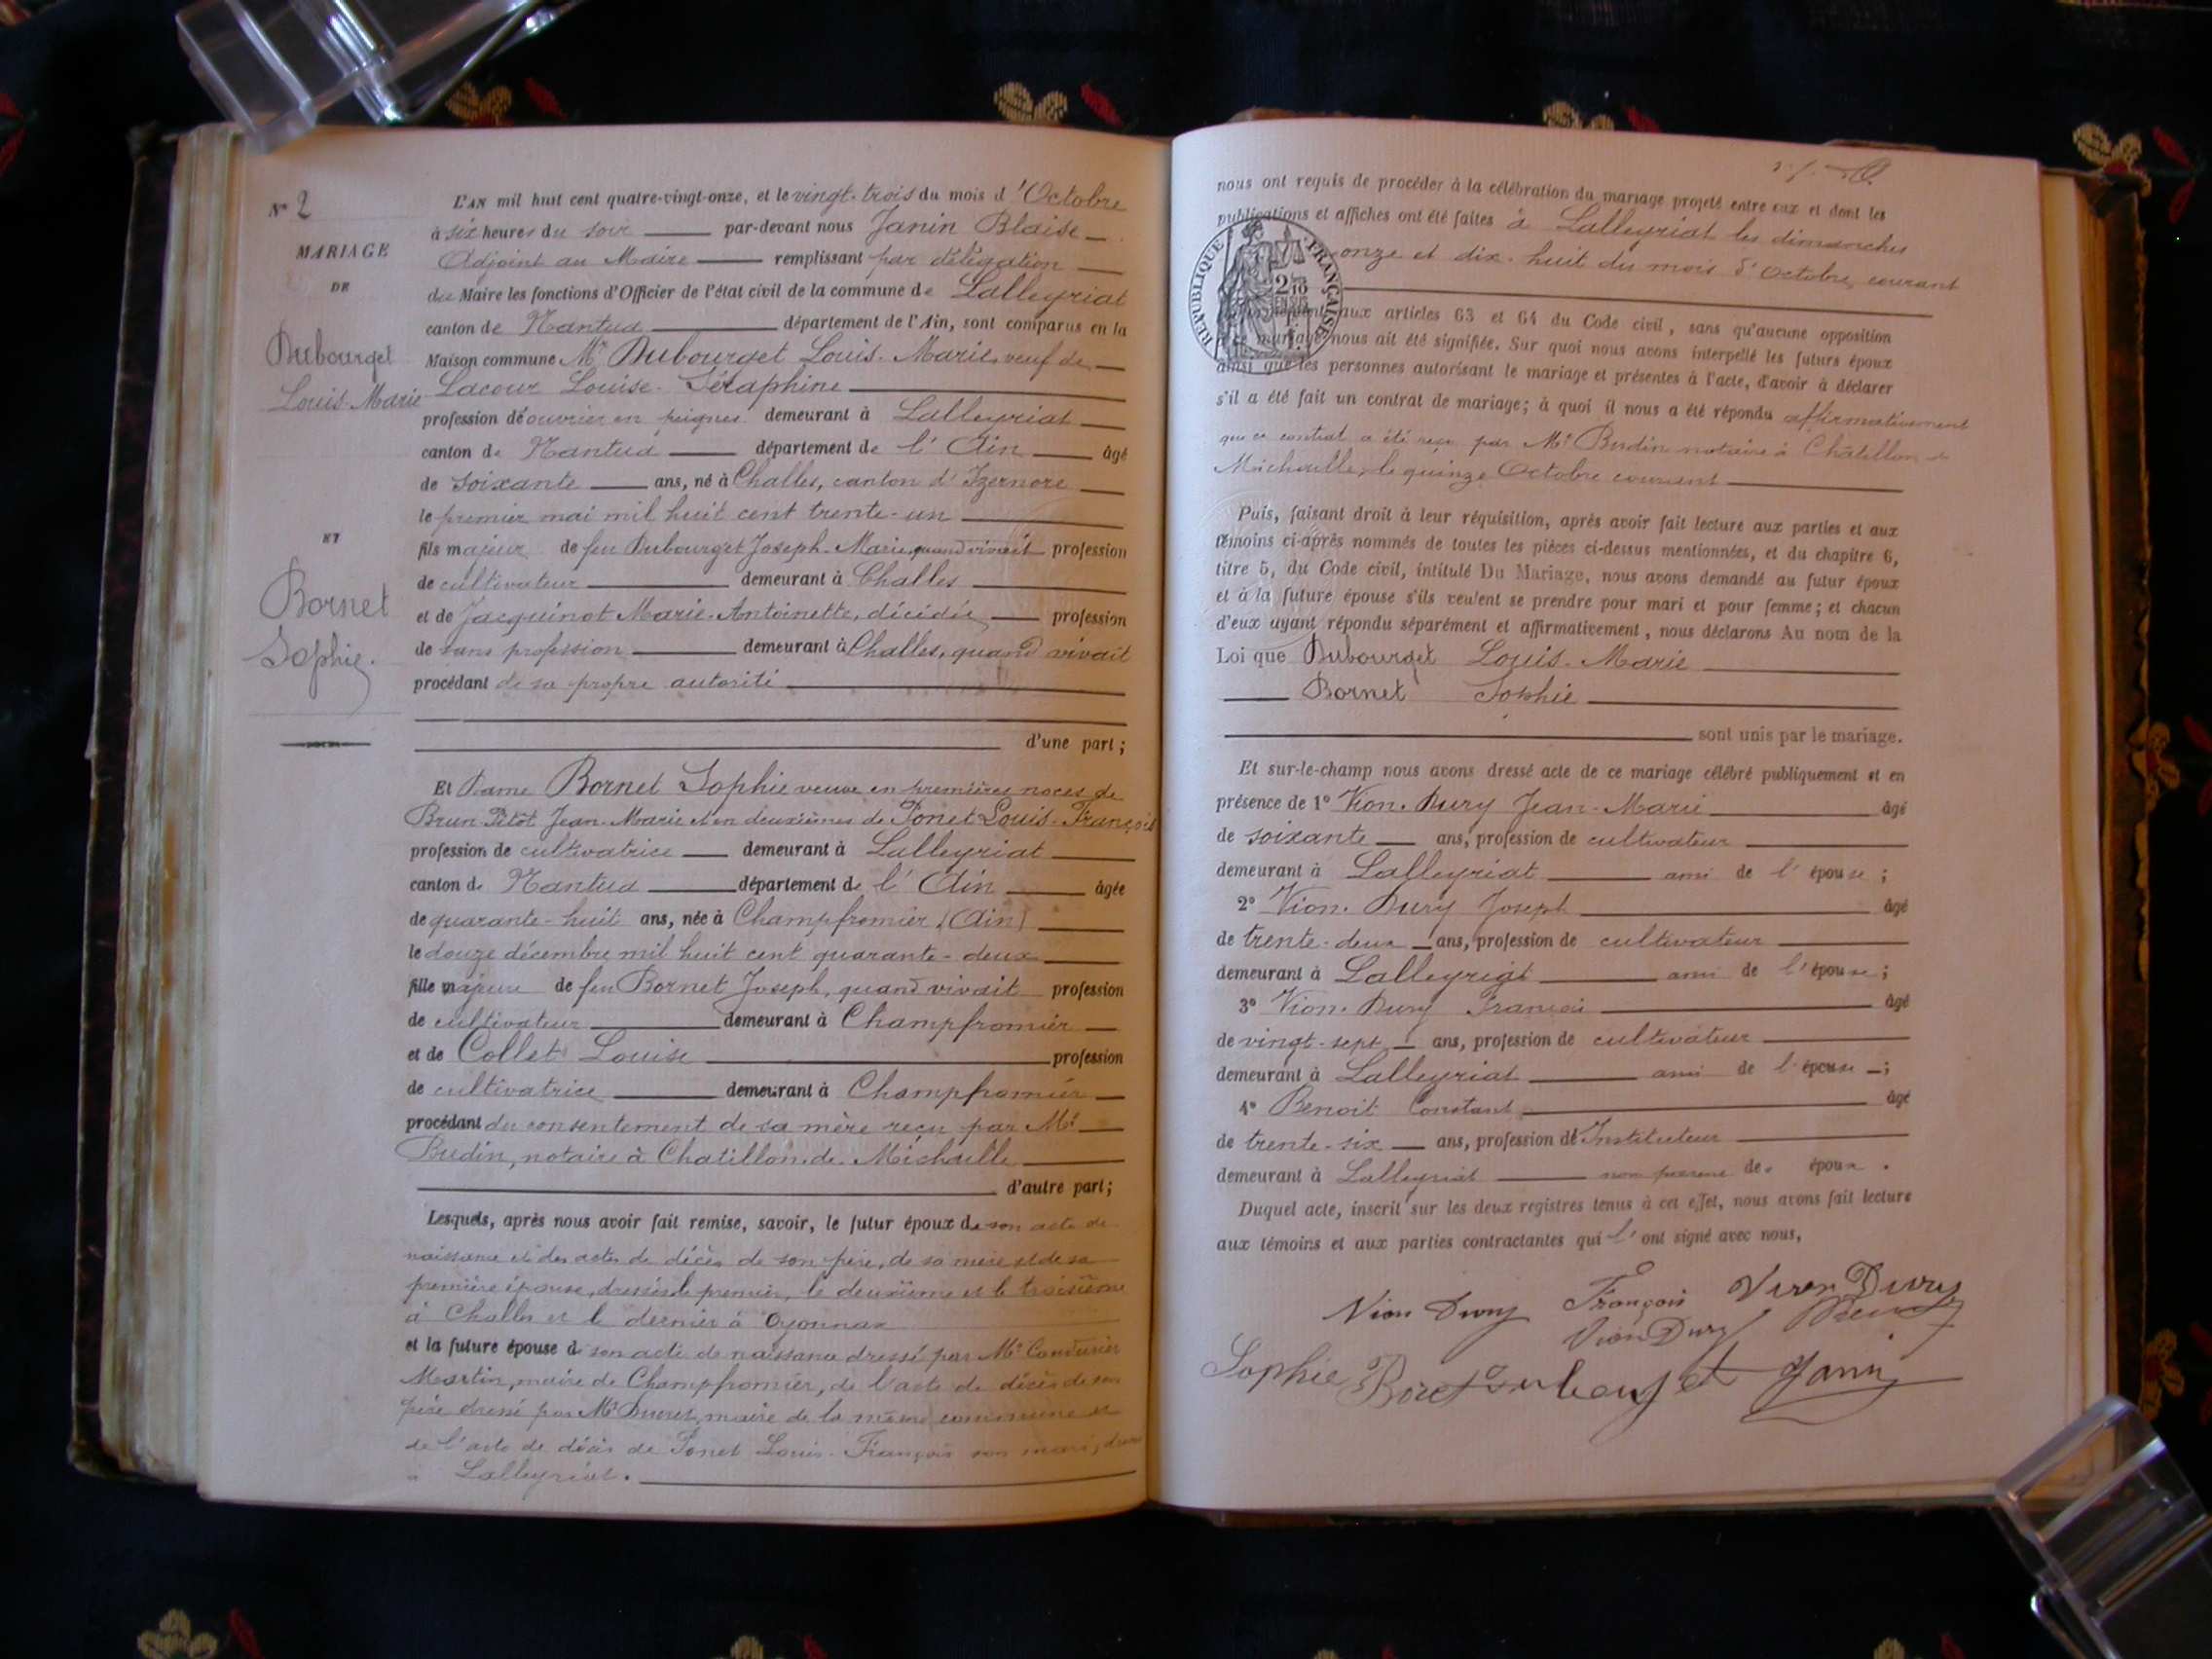 N° 2
MARIAGE
DE
Dubourget
Louis-Marie
ET
Bornet
Sophie.
L'AN mil huit cent quatre-vingt-onze, et le vingt-trois du mois d'Octobre
à six heures du soir par-devant nous Janin Blaise
Adjoint au Maire remplissant par délégation
du Maire les fonctions d'Officier de l'état civil de la commune de Lalleyriat
canton de Nantua département de l'Ain, sont comparus en la
Maison commune Mr Dubourget Louis-Marie, veuf de
Lacour Louise-Séraphine
profession d'ouvrier en peignes demeurant à Lalleyriat
canton de Nantua département de l'Ain âgé
de soixante ans, né à Challes, canton d'Izernore
le premier mai mil huit cent trente-un
fils majeur de feu Dubourget Joseph-Marie, quand vivait profession
de cultivateur demeurant à Challes
et de Jacquinot Marie-Antoinette, décédée profession
de sans profession demeurant à Challes, quand vivait
procédant de sa propre autorité
d'une part;
Et Dame Bornet Sophie veuve en premières noces de
Brun-Pitot Jean-Marie et en deuxièmes de Ponet Louis-François
profession de cultivatrice demeurant à Lalleyriat
canton de Nantua département de l'Ain âgée
de quarante-huit ans, née à Champfromier (Ain)
le douze décembre mil huit cent quarante-deux
fille majeure de feu Bornet Joseph, quand vivait profession
de cultivateur demeurant à Champfromier
et de Collet Louise profession
de cultivatrice demeurant à Champfromier
procédant du consentement de sa mère reçu par Me
Budin, notaire à Chatillon-de-Michaille
d'autre part;
Lesquels, après nous avoir fait remise, savoir, le futur époux de son acte de
naissance et des actes de décès de son père, de sa mère et de sa
première épouse, dressés le premier, le deuxième et le troisième
à Challes et le dernier à Oyonnax
et la future épouse de son acte de naissance dressé par Mr
Martin, maire de Champfromier, de l'acte de décès de son
père dressé par Mr Ducret, maire de la même commune et
de l'acte de décès de Ponet Louis-François son mari, dressé
à Lalleyriat.
nous ont requis de procéder à la célébration du mariage projeté entre eux et dont les
publications et affiches ont été faites à Lalleyriat les dimanches
onze et dix-huit du mois d'Octobre, courant
RÉPUBLIQUE FRANÇAISE
2/10
EN SUS
aux articles 63 et 64 du Code civil, sans qu'aucune opposition
ce mariage nous ait été signifiée. Sur quoi nous avons interpellé les futurs époux
ainsi que les personnes autorisant le mariage et présentes à l'acte, d'avoir à déclarer
s'il a été fait un contrat de mariage; à quoi il nous a été répondu affirmativement
que ce contrat a été reçu par Me Budin notaire à Châtillon de
Michaille, le quinze Octobre courant
Puis, faisant droit à leur réquisition, après avoir fait lecture aux parties et aux
témoins ci-après nommés de toutes les pièces ci-dessus mentionnées, et du chapitre 6,
titre 5, du Code civil, intitulé Du Mariage, nous avons demandé au futur époux
et à la future épouse s'ils veulent se prendre pour mari et pour femme; et chacun
d'eux ayant répondu séparément et affirmativement, nous déclarons Au nom de la
Loi que Dubourget Louis-Marie
Bornet Sophie
sont unis par le mariage.
Et sur-le-champ nous avons dressé acte de ce mariage célébré publiquement et en
présence de 1° Vion-Dury Jean-Marie âgé
de soixante ans, profession de cultivateur
demeurant à Lalleyriat ami de l'épouse;
2° Vion-Dury Joseph âgé
de trente-deux ans, profession de cultivateur
demeurant à Lalleyriat ami de l'épouse;
3° Vion-Dury François âgé
de vingt-sept ans, profession de cultivateur
demeurant à Lalleyriat ami de l'épouse;
4° Benoit Constant âgé
de trente-six ans, profession d'Instituteur
demeurant à Lalleyriat non parent des époux.
Duquel acte, inscrit sur les deux registres tenus à cet effet, nous avons fait lecture
aux témoins et aux parties contractantes qui l'ont signé avec nous,
Vion Dury François Vion Dury
Vion Dury Benoit
Sophie Janin